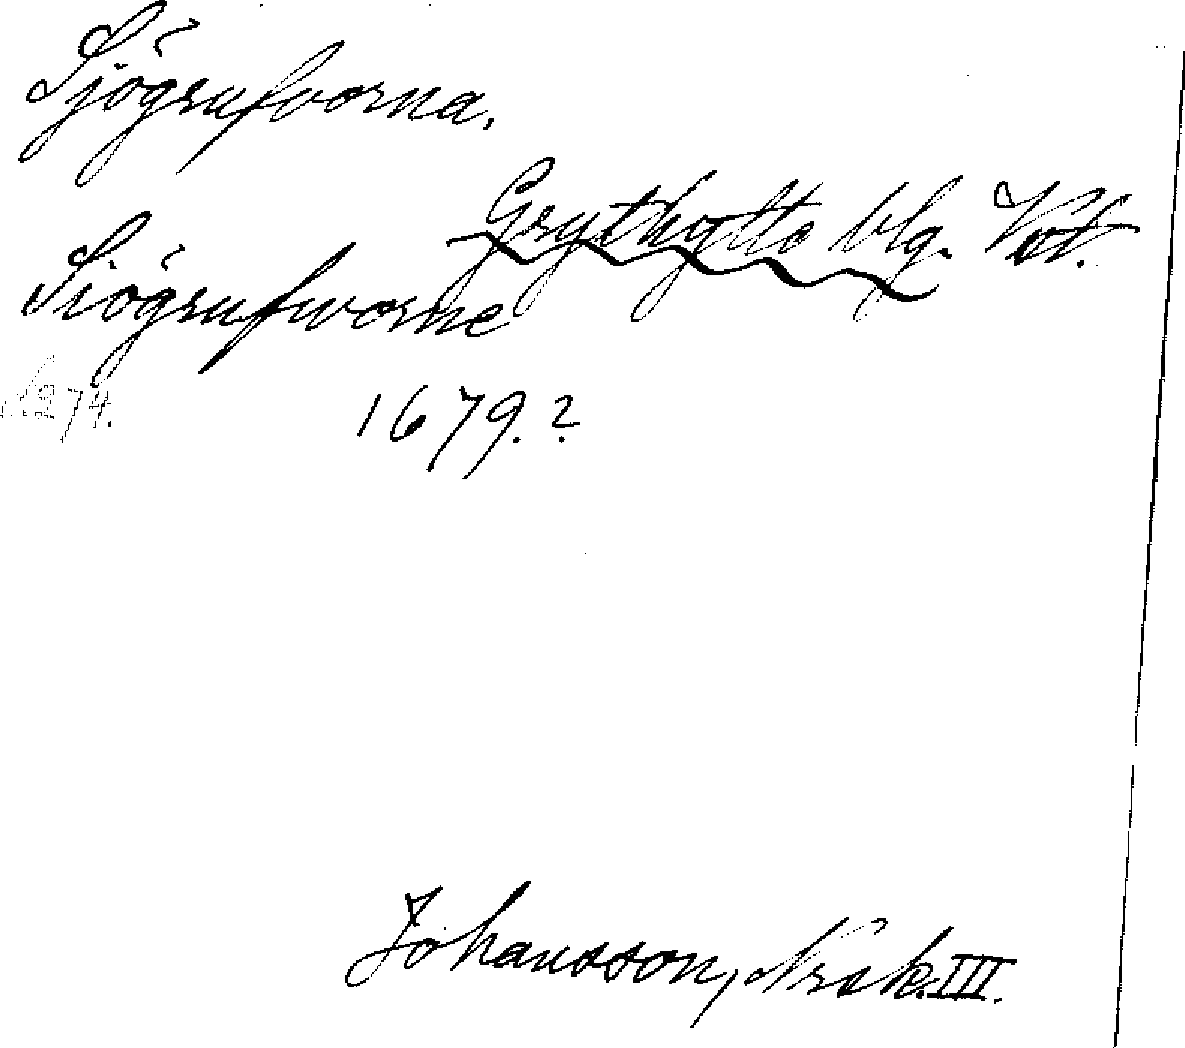 Sjögrufvorna.
Grythytte blg. Vst.
Siögrufworne
274.
1679.?
Johansson, Norsk. III.